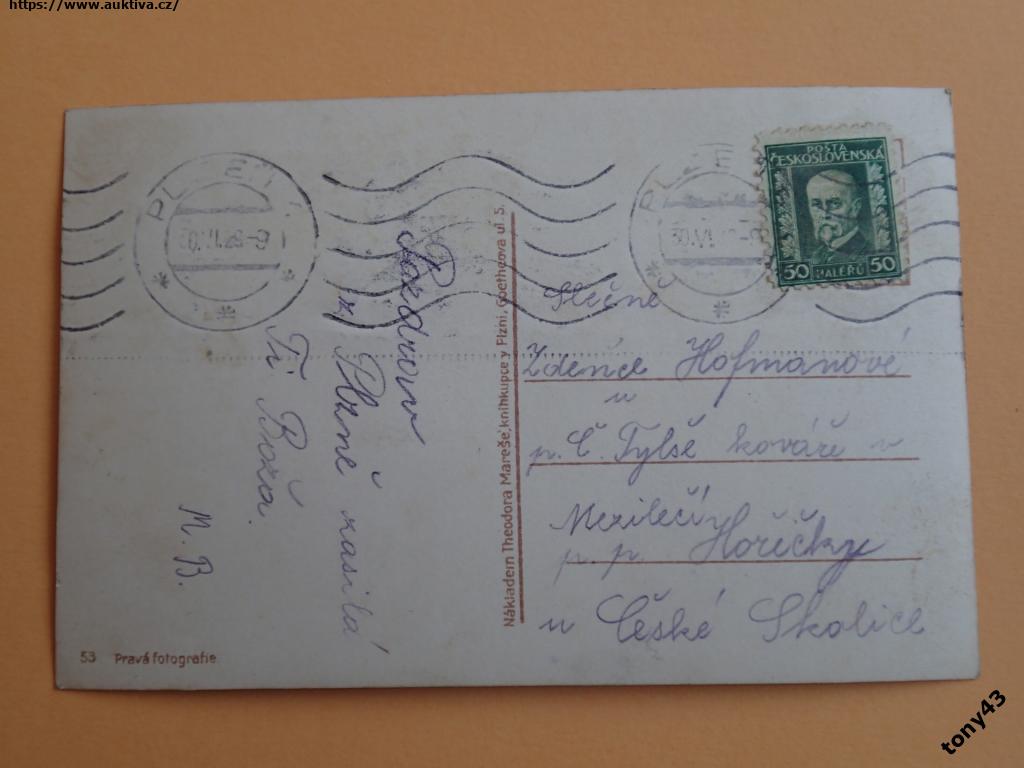 https://www.auktiva.cz/
PLZEŇ
PLZEŇ
POŠTA
ČESKOSLOVENSKÁ
50 HALÉŘŮ 50
Pozdrav
z Plzně zasílá
Ti Boža.
M. B.
Nákladem Theodora Mareše, knihkupce v Plzni, Goethova ul. 5.
Slečně
Zdence Hofmanové
u
p. Č. Tylše kováře v
Mezilečí
p. p. Hořičky
u České Skalice
53 Pravá fotografie
tony43